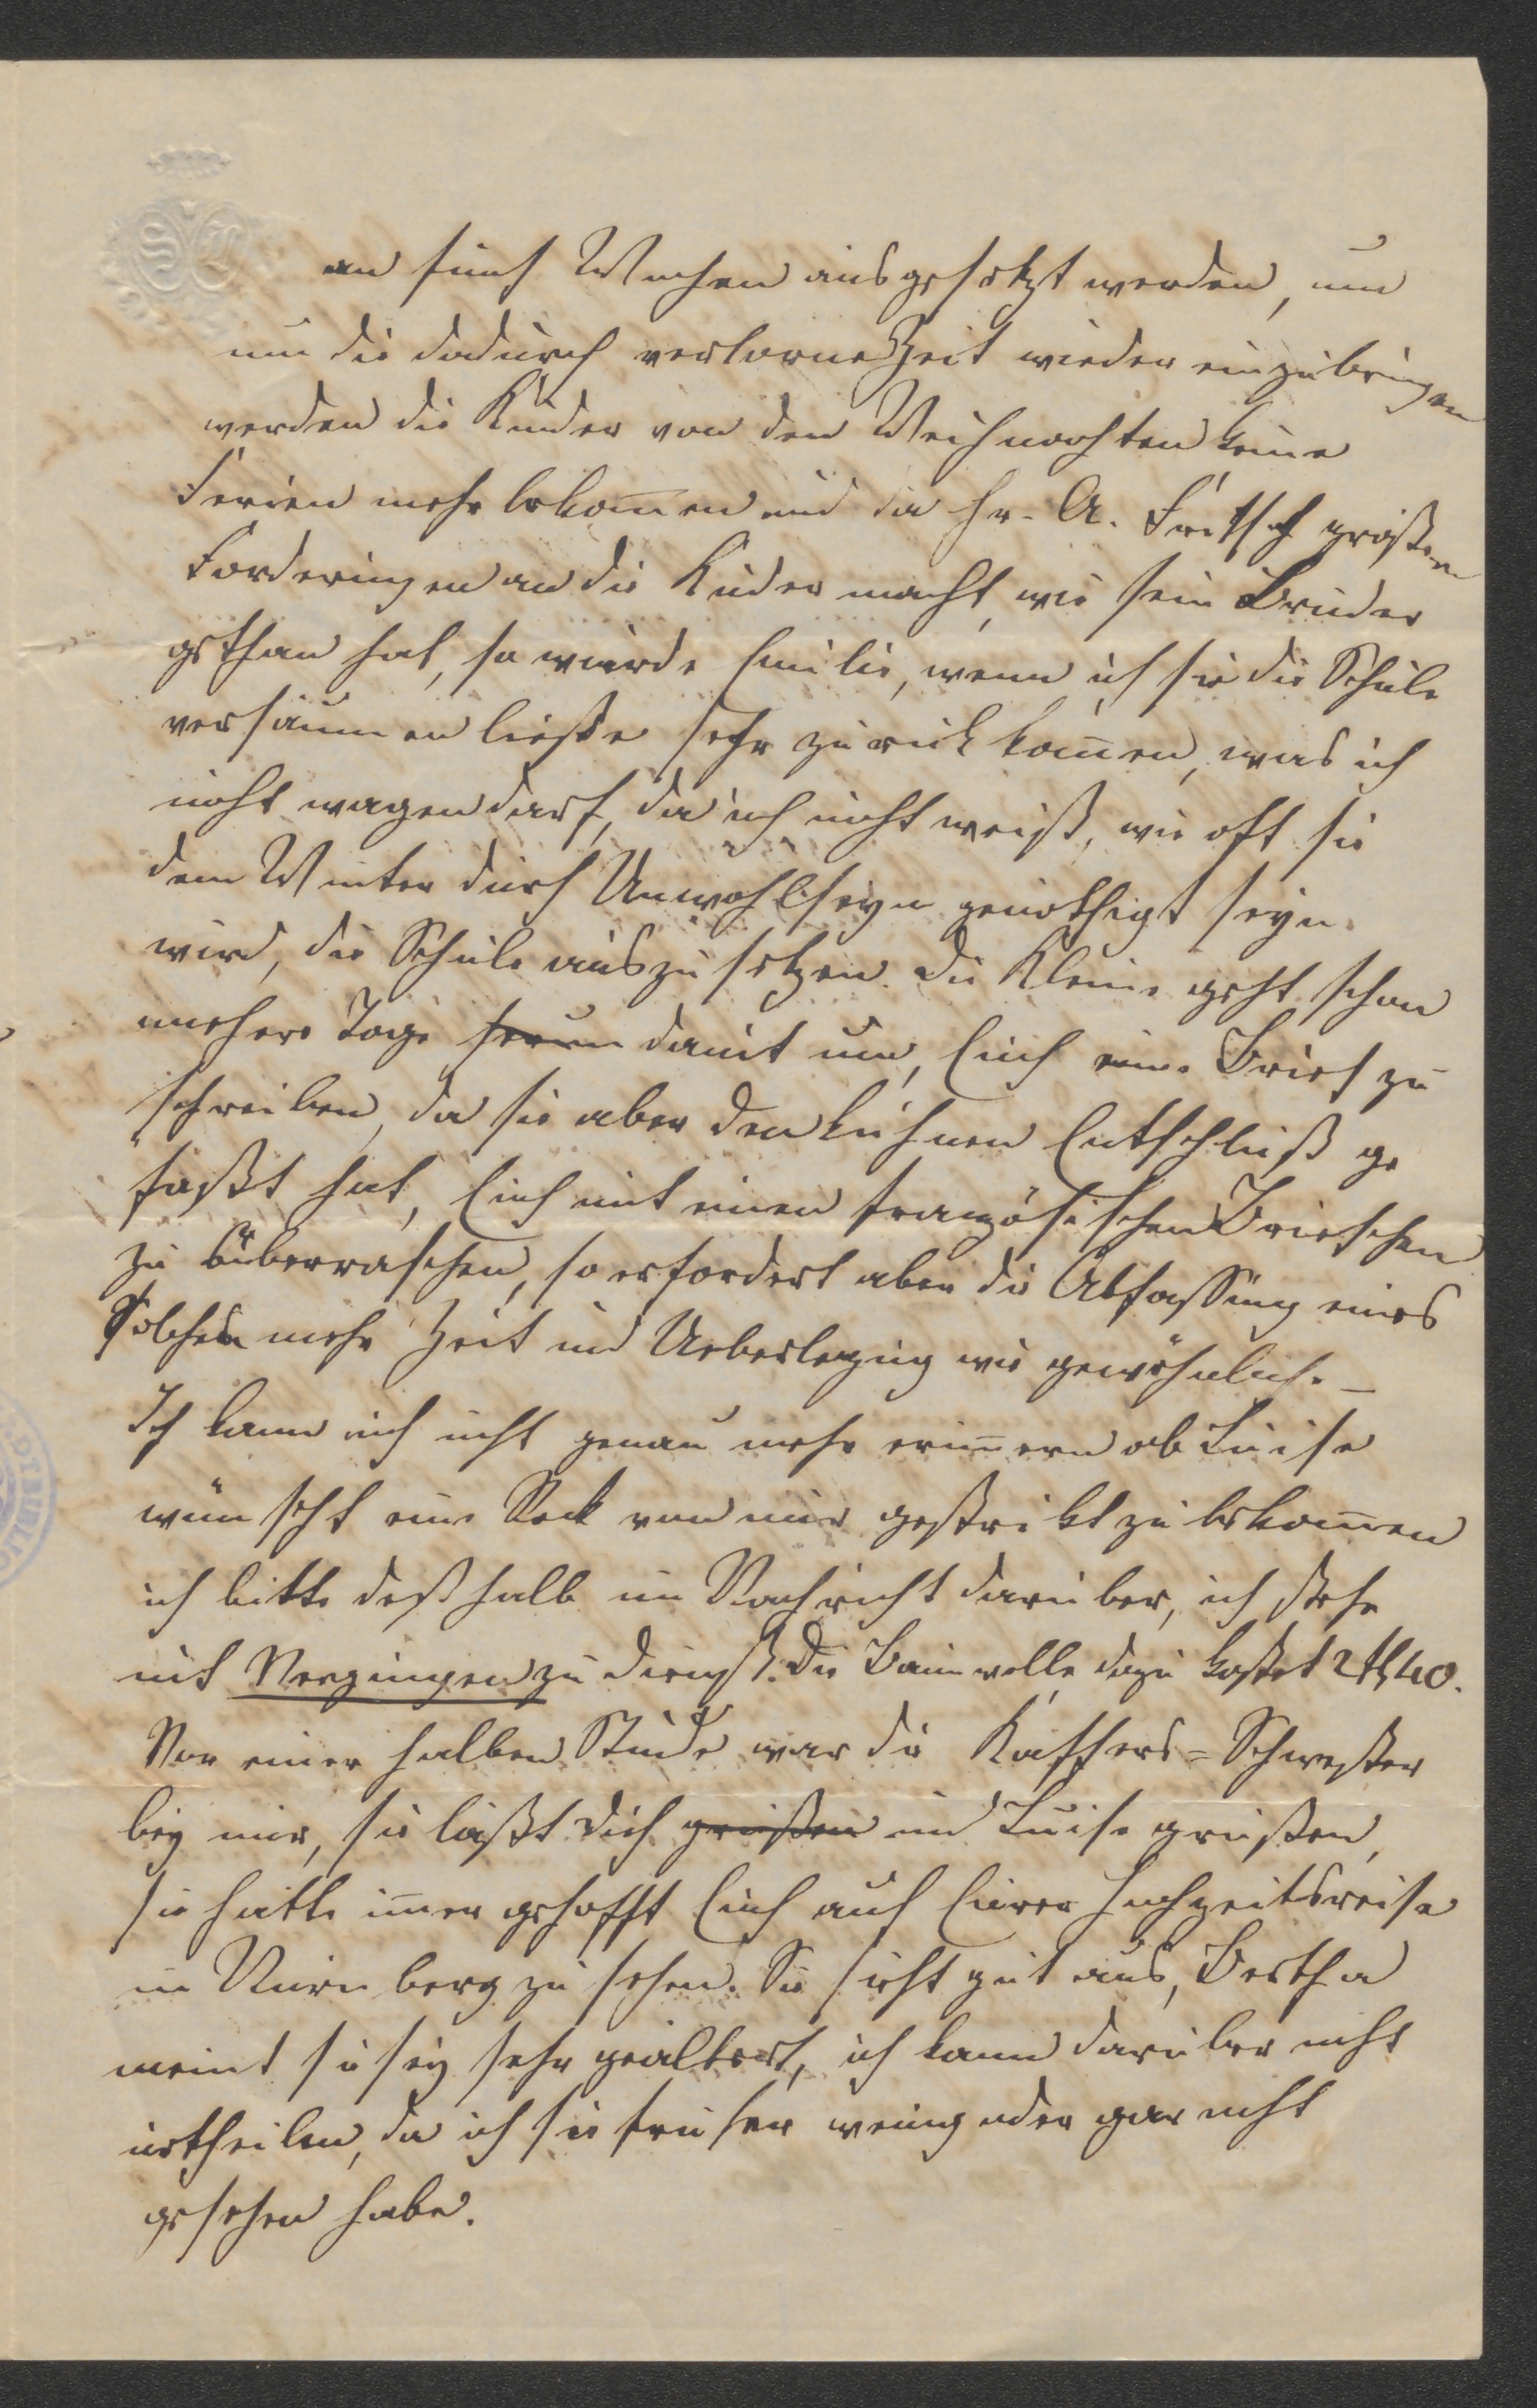 an fünf Wochen ausgesetzt werden, um
um die dadurch verlorne Zeit wieder einzubringen
werden die Kinder von den Weihnachten keine
Ferien mehr bekom̄en und da Hr. A. Fritsch größere
Forderungen an die Kinder macht, wie sein Bruder
gethan hat, so würde Emilie, wenn ich sie die Schule
versäumen ließe sehr zurück kom̄en, was ich
nicht wagen darf, da ich nicht weiß, wie oft sie
dem Winter durch Unwohlseyn genöthigt seyn
wird, die Schule auszusetzen. Die Kleine geht schon
mehere Tage damit um, Euch eine Brief zu
schreiben, da sie aber den kühnen Entschluß ge
faßt hat, Euch mit einen französischen Briefchen
zu überraschen, so erfordert aber die Abfassung eines
Solchen mehr Zeit und Ueberlegung wie gewöhnlich. –
Ich kann mich nicht genau mehr erin̄ern ob Luise
wünscht eine Rock von mir gestrikt zu bekom̄en
ich bitte deßhalb um Nachricht darüber, ich stehe
mit Vergnügen zu Dienst. Die Baumwolle dazu kostet 2 fl 40.
Vor einer halben Stunde war die Kaffers=Schwester
bey mir, sie läßt Dich grüßen und Luise grüßen,
sie hatte im̄er gehofft Euch auf Eurer Hochzeitsreise
in Nürnberg zu sehen. Sie sieht gut aus, Bertha
meint sie sey sehr gealtert, ich kann darüber nicht
urtheilen, da ich sie früher wenig oder gar nicht
gesehen habe.